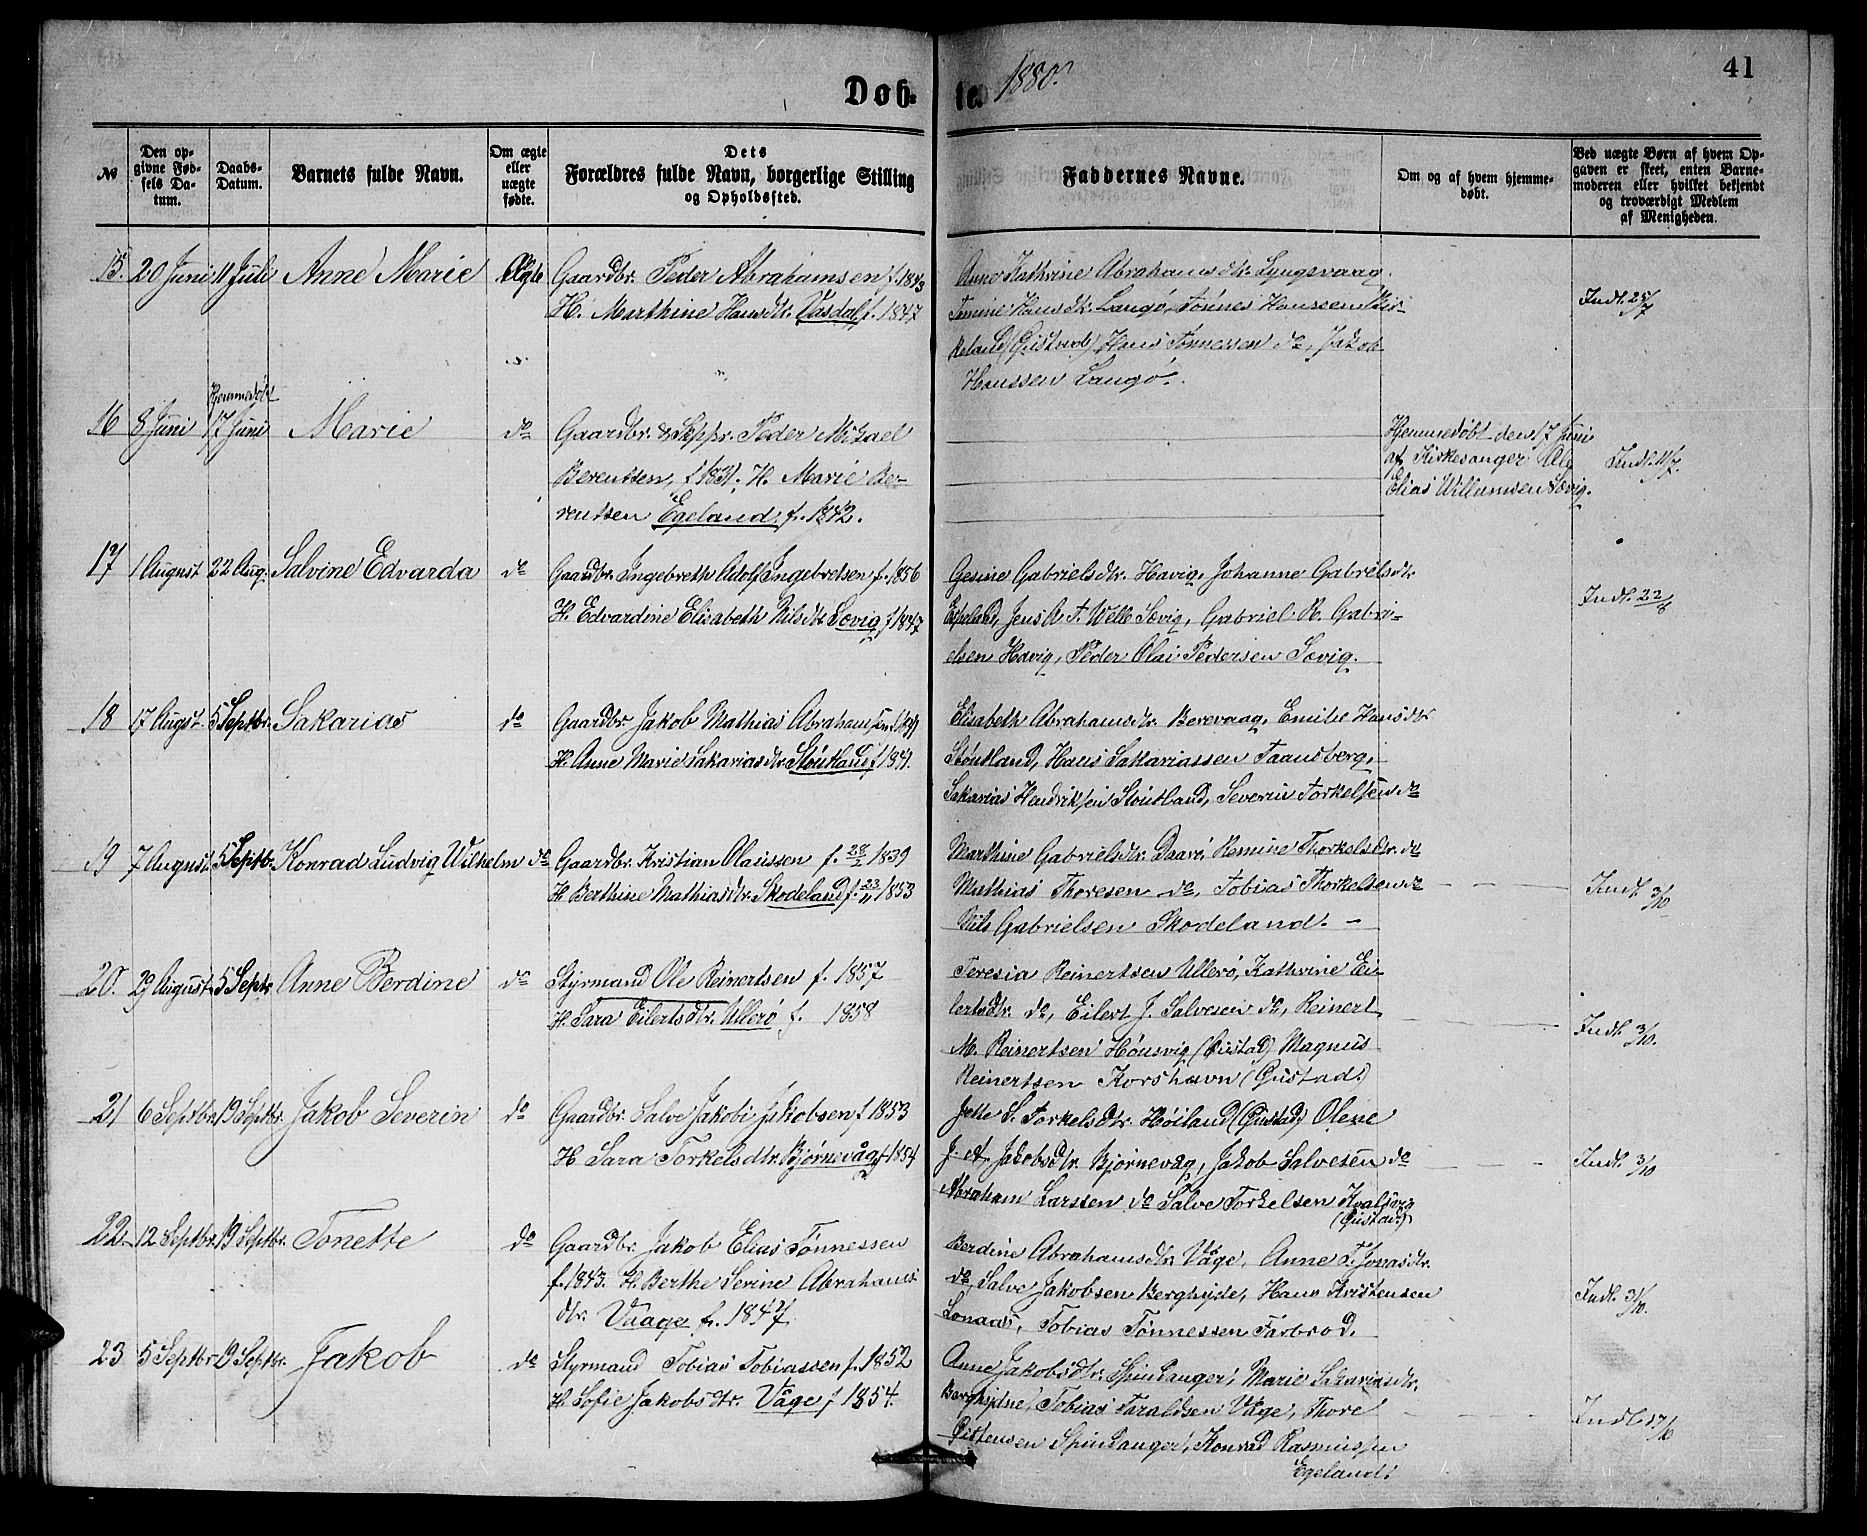 Døb-
te
1880.
41
№
Den op-
givne Fød-
sels Da-
tum.
Daabs-
Datum.
Barnets fulde Navn.
Om ægte
eller
uægte
fødte.
Dets
Forældres fulde Navn, borgerlige Stilling
og Opholdssted.
Faddernes Navne.
Om og af hvem hjemme-
døbt.
Ved uægte Børn af hvem Op-
gaven er skeet, enten Barne-
moderen eller hvilket bekjendt
og troværdigt Medlem
af Menigheden.
15. 20 Juni 11 Juli Anne Marie Ægte
Gaardbr. Peder Abrahamsen f. 1843
H. Marthine Hansdtr. Vasdal f. 1847
Anne Kathrine Abrahamsdtr. Lyngsvaag.
Hansdtr. Langø, Tönnes Hanssen Bir-
keland (Gustad) Hans Tönnessen do, Jakob
Hanssen Langø.
Indl. 25/7
16 8 Juni Hjemmedøbt
17 Juni Marie do
Gaardbr. & Skppr. Peder Mikael
Berentsen, f 1831. H. Marie Be-
rentsen Egeland f. 1842.
Hjemmedøbt den 17 Juni
af Kirkesanger Ole
Elias Willumsen Sævig.
Indl. 11/7
17 1 August 22 Aug. Salvine Edvarda do
Gaardbr. Ingebreth Adolf Ingebretsen f. 1856
H. Edvardine Elisabeth Nilsdtr Sævig f 1847
Gesine Gabrielsdtr. Havig, Johanne Gabrielsdtr
Egeland, Jens A. T. Welle Sævig, Gabriel R. Gabri-
elsen Havig, Peder Olai Pedersen Sævig.
Indl. 22/8
18 17 Augst. 5 Septbr. Sakarias do
Gaardbr Jakob Mathias Abrahamsen f 1839
H. Anne Marie Sakariasdtr. Støutland f 1841.
Elisabeth Abrahamsdtr. Berevaag, Emilie Hansdtr
Støutland, Hans Sakariassen Taansberg,
Sakarias Hendriksen Støutland, Severin Torkelsen do
19 7 August 5 Septb. Konrad Ludvig Wilhelm do
Gaardbr. Kristian Olaissen f. 28/2 1839
H Berthine Mathiasdtr. Skodeland f. 23/11 1853
Marthine Gabrielsdtr. Daavø, Remine Thorkelsdtr. do
Mathias Thoresen do, Tobias Thorkelsen do
Nils Gabrielsen Skodeland.
Indl. 3/10
20. 29 August 5 Septr. Anne Berdine do
Styrmand Ole Reinertsen f. 1857
H. Sara Eilertsdtr. Ullerø f. 1858
Teresia Reinertsen Ullerø, Kathrine Ei-
lertsdtr. do, Eilert J. Salvesen do, Reinert
M. Reinertsen Høusvig (Gustad) Magnus
Reinertsen Korshavn (Gustad.)
Indl. 3/10.
21 6 Septbr. 19 Septbr. Jakob Severin do
Gaardbr. Salve Jakobi Jakobsen f 1853
H Sara Torkelsdtr. Bjørnevåg f 1854
Jette S. Torkelsdtr. Høiland (Gustad) Olene
J. A. Jakobsdtr. Bjørnevåg, Jakob Salvesen do
Abraham Larssen do Salve Torkelsen Kvalsvig
(Gustad.)
Indl. 3/10
22 12 Septbr. 19 Septbr. Tonette do
Gaardbr. Jakob Elias Tönnessen
f. 1843. H. Berthe Serine Abrahams-
dtr. Vaage f. 1847.
Berdine Abrahamsdtr. Våge, Anne T. Jonasdtr.
do, Salve Jakobsen Berghøjde, Hans Kristensen
Lonaas, Tobias Tönnessen Farbrod.
Indl. 31/10.
23 5 Septbr 19 Septbr. Jakob do
Styrmand Tobias Tobiassen f. 1852
H. Sofie Jakobsdtr. Våge f 1854.
Anne Jakobsdtr. Spindsanger, Marie Sakariasdtr.
Berghøjde, Tobias Taraldsen Våge, Thore
Spindsanger, Konrad Rasmussen
Egeland.
Indl. 17/10